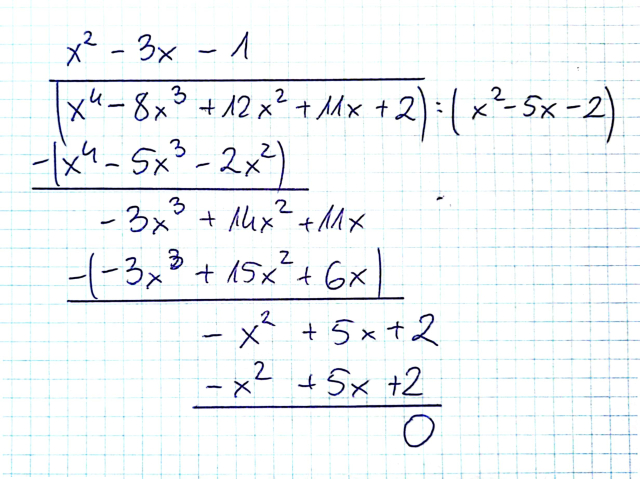 x² - 3x - 1
(x⁴ - 8x³ + 12x² + 11x + 2) : (x² - 5x - 2)
-(x⁴ - 5x³ - 2x²)
- 3x³ + 14x² + 11x
-(-3x³ + 15x² + 6x)
- x² + 5x + 2
- x² + 5x + 2
0